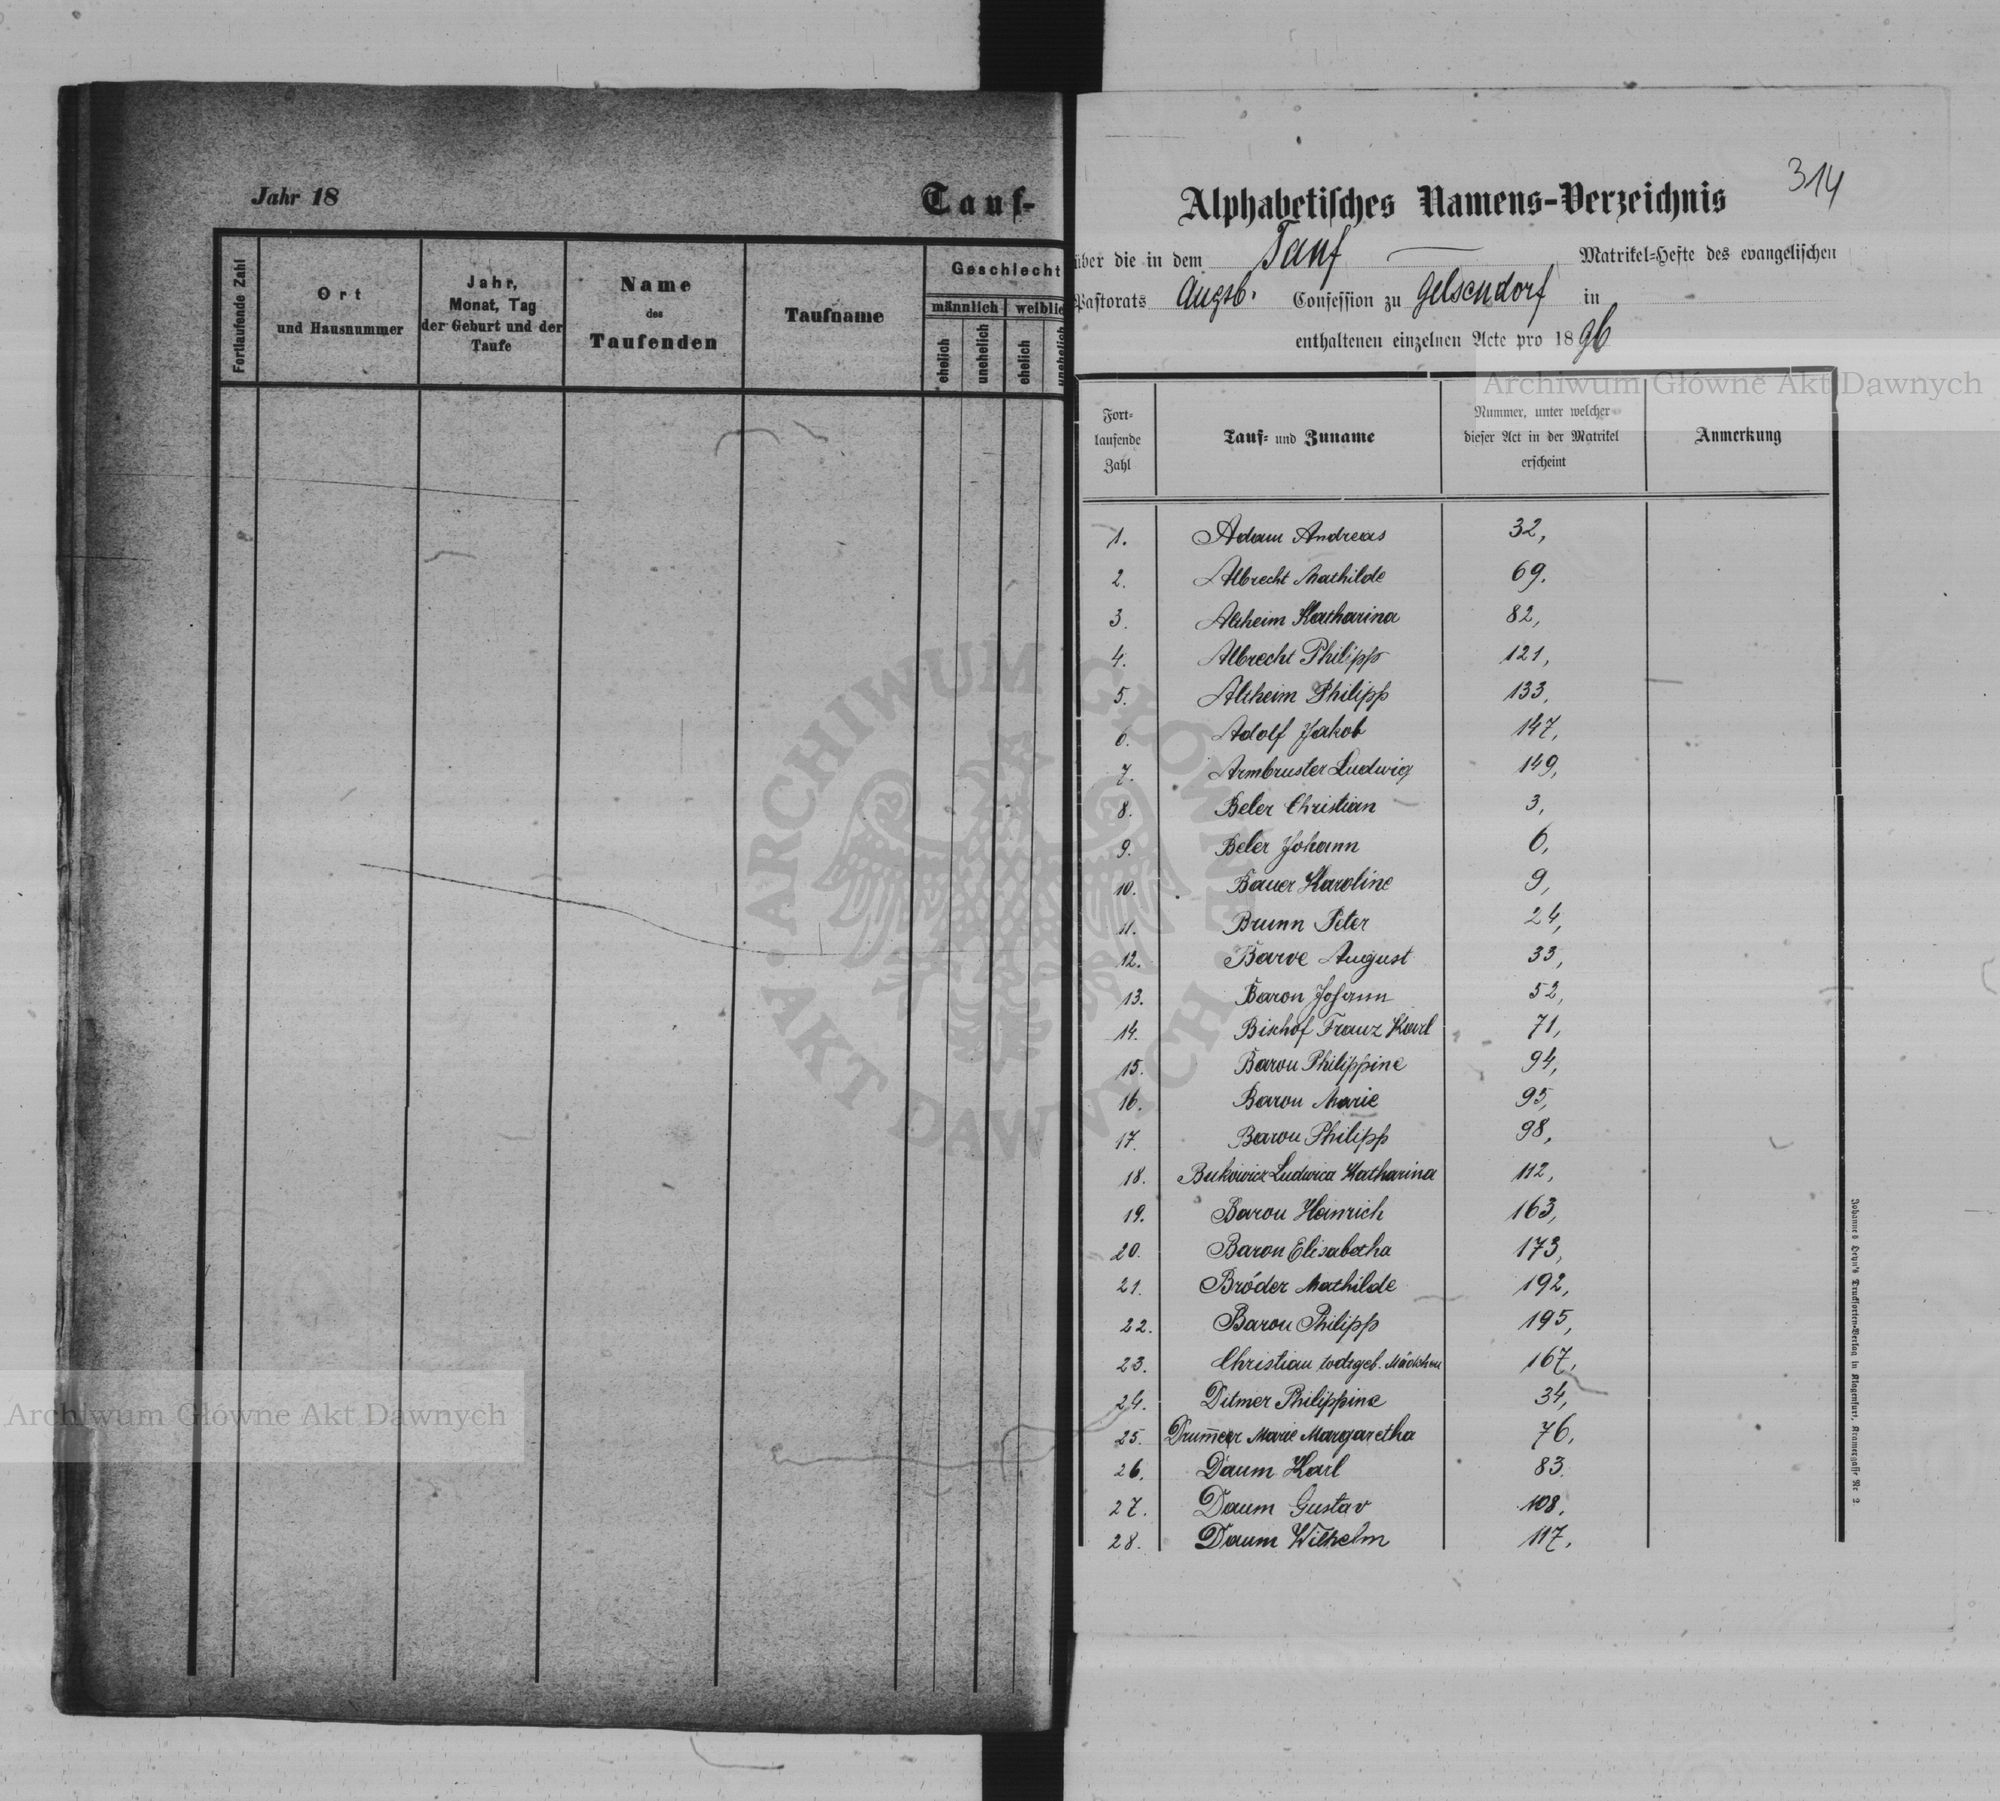 Jahr 18
Tauf-
Fortlaufende Zahl
Ort
und Hausnummer
Jahr,
Monat, Tag
der Geburt und der
Taufe
Name
des
Taufenden
Taufname
Geschlecht
männlich
weiblich
ehelich
unehelich
ehelich
unehelich
314
Alphabetisches Namens-Verzeichnis
über die in dem Tauf Matrikel-Hefte des evangelischen
Pastorats Augsb. Confession zu Gelsendorf in
enthaltenen einzelnen Acte pro 1896
Fort-
laufende
Zahl
Tauf- und Zuname
Nummer, unter welcher
dieser Act in der Matrikel
erscheint
Anmerkung
1. Adam Andreas 32,
2. Albrecht Mathilde 69.
3. Altheim Katharina 82,
4. Albrecht Philipp 121,
5. Altheim Philipp 133,
6. Adolf Jakob 147,
7. Armbruster Ludwig 149,
8. Beler Christian 3,
9. Beler Johann 6,
10. Bauer Karoline 9,
11. Brunn Peter 24,
12. Barve August 33,
13. Baron Johann 52,
14. Bischof Franz Karl 71,
15. Baron Philippine 94,
16. Baron Marie 95,
17. Baron Philipp 98,
18. Bukowicz Ludwica Katharina 112,
19. Baron Heinrich 163,
20. Baron Elisabetha 173,
21. Bróder Mathilde 192,
22. Baron Philipp 195,
23. Christian todtgeb. Mädchen 167,
24. Ditmer Philippine 34,
25. Drum̅er Marie Margaretha 76,
26. Daum Karl 83.
27. Daum Gustav 108,
28. Daum Wilhelm 117,
Johannes Heyn's Drucksorten-Verlag in Klagenfurt, Kramergasse Nr. 2.
Archiwum Główne Akt Dawnych
Archiwum Główne Akt Dawnych
ARCHIWUM GŁÓWNE
AKT DAWNYCH